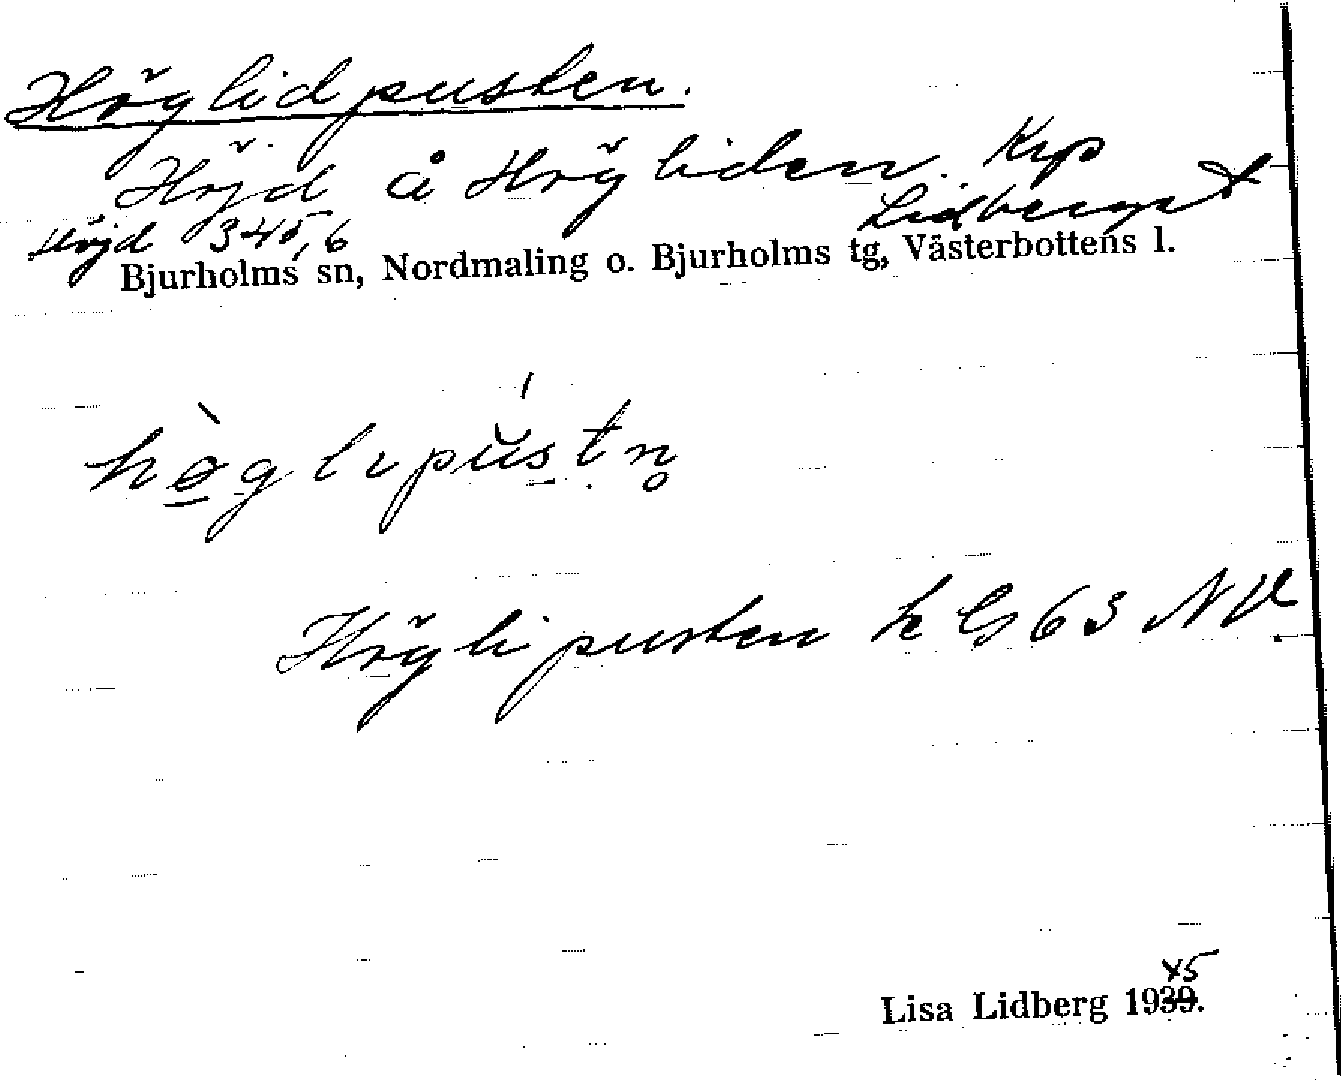 Höglidpusten.
Höjd å Högliden. Krp
Lidberget
Höjd 345,6
Bjurholms sn, Nordmaling o. Bjurholms tg, Västerbottens l.
hø̀glıpústn̥
Höglipusten k Gs 63 NV
45
Lisa Lidberg 1939.